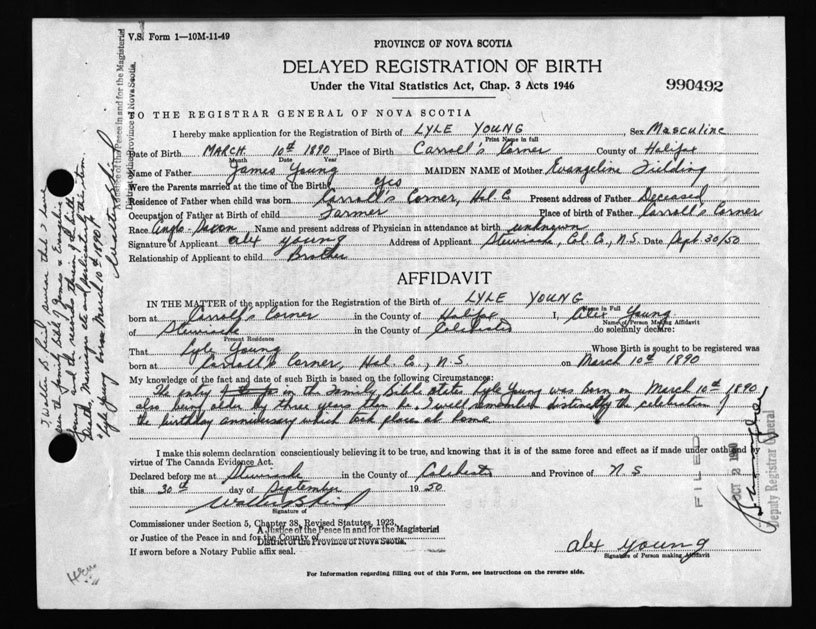 V.S. Form 1—10M-11-49
PROVINCE OF NOVA SCOTIA
DELAYED REGISTRATION OF BIRTH
Under the Vital Statistics Act, Chap. 3 Acts 1946
990492
TO THE REGISTRAR GENERAL OF NOVA SCOTIA
I hereby make application for the Registration of Birth of LYLE YOUNG, Sex Masculine
Print Name in full
Date of Birth MARCH 10th 1890, Place of Birth Carroll's Corner County of Halifax
Month Date Year
Name of Father James Young MAIDEN NAME of Mother Evangeline Fielding
Were the Parents married at the time of the Birth yes
Residence of Father when child was born Carroll's Corner, Hal. C. Present address of Father Deceased
Occupation of Father at Birth of child Farmer Place of birth of Father Carroll's Corner
Race Anglo-Saxon Name and present address of Physician in attendance at birth unknown
Signature of Applicant alex young Address of Applicant Stewiacke, Col. Co., N.S. Date Sept. 30/50
Relationship of Applicant to child Brother
AFFIDAVIT
IN THE MATTER of the application for the Registration of Birth of LYLE YOUNG
Name in Full
born at Carroll's Corner in the County of Halifax I, Alex Young
Name of Person Making Affidavit
of Stewiacke in the County of Colchester do solemnly declare:
Present Residence
That Lyle Young Whose Birth is sought to be registered was
born at Carroll's Corner, Hal. C., N.S. on March 10th 1890
My knowledge of the fact and date of such Birth is based on the following Circumstances:
The entry in the Family Bible states Lyle Young was born on March 10th 1890
also being older by three years than he, I well remember distinctly the celebration of
the birthday anniversary which took place at home
I make this solemn declaration conscientiously believing it to be true, and knowing that it is of the same force and effect as if made under oath and by
virtue of The Canada Evidence Act.
Declared before me at Stewiacke in the County of Colchester and Province of N S
this 30th day of September 1950
Signature of
Commissioner under Section 5, Chapter 38, Revised Statutes, 1923,
A Justice of the Peace in and for the Magisterial
or Justice of the Peace in and for the County of
District of the Province of Nova Scotia.
If sworn before a Notary Public affix seal.
alex young
Signature of Person making Affidavit
For Information regarding filling out of this Form, see instructions on the reverse side.
FILED
OCT 2 1950
Deputy Registrar General
I, Walter B. swear that I have
seen the family bible of James & Evangeline
Young and the records therein of the birth
Death, Marriages etc and particularly the item
"Lyle Young born March 10th, 1890"
A Justice of the Peace in and for the Magisterial
District of the Province of Nova Scotia.